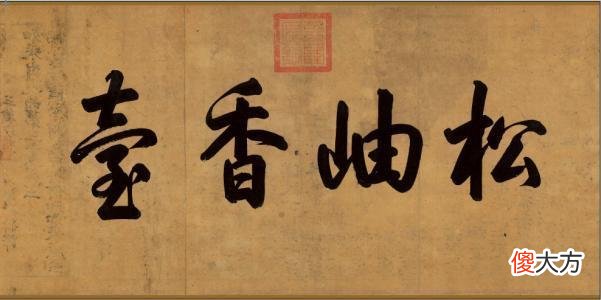 松岫香臺
傻大方